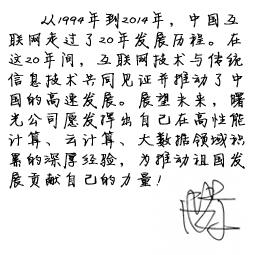 从1994年到2014年，中国互
联网走过了20年发展历程。在
这20年间，互联网技术与传统
信息技术共同见证并推动了中
国的高速发展。展望未来，曙
光公司愿发挥出自己在高性能
计算、云计算、大数据领域积
累的深厚经验，为推动祖国发
展贡献自己的力量！